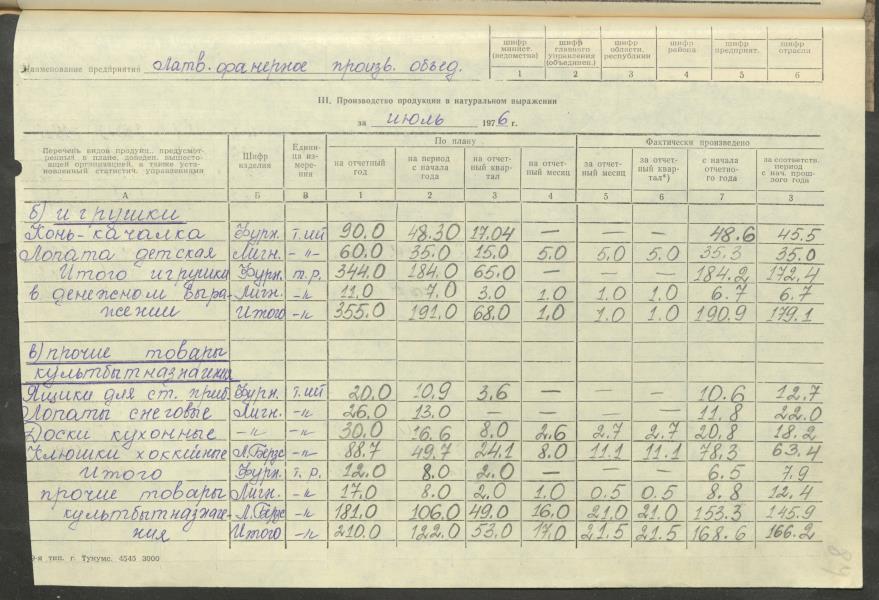 Наименование предприятия Латв. фанерное произв. объед.
шифр минист. (ведомства) шифр главного управления (объединен.) шифр области, республики шифр района шифр предприят. шифр отрасли
1 2 3 4 5 6
III. Производство продукции в натуральном выражении
за июль 1976 г.
Перечень видов продукц., предусмотренных в плане, доведен. вышестоящей организацией, а также установленный статистич. управлениями Шифр изделия Единица измерения По плану Фактически произведено
на отчетный год на период с начала года на отчетный квартал на отчетный месяц за отчетный месяц за отчетный квартал*) с начала отчетного года за соответств. период с нач. прошлого года
А Б В 1 2 3 4 5 6 7 8
б) игрушки
Конь-качалка Фурн. т. шт 90.0 48.30 17.04 — — — 48.6 45.5
Лопата детская Лигн. -"- 60.0 35.0 15.0 5.0 5.0 5.0 35.3 35.0
Итого игрушки Фурн. т.р. 344.0 184.0 65.0 — — — 184.2 172.4
в денежном выра- Лигн. -"- 11.0 7.0 3.0 1.0 1.0 1.0 6.7 6.7
жении Итого -"- 355.0 191.0 68.0 1.0 1.0 1.0 190.9 179.1
в) прочие товары
культбытназначения
Ящики для ст. приб. Фурн. т. шт 20.0 10.9 3.6 — — — 10.6 12.7
Лопаты снеговые Лигн. -"- 26.0 13.0 — — — — 11.8 22.0
Доски кухонные -"- -"- 30.0 16.6 8.0 2.6 2.7 2.7 20.8 18.2
Клюшки хоккейные Л. Берзс -"- 88.7 49.7 24.1 8.0 11.1 11.1 78.3 63.4
Итого Фурн. т. р. 12.0 8.0 2.0 — — — 6.5 7.9
прочие товары Лигн. -"- 17.0 8.0 2.0 1.0 0.5 0.5 8.8 12.4
культбытназначе- Л. Берзс -"- 181.0 106.0 49.0 16.0 21.0 21.0 153.3 145.9
ния Итого -"- 210.0 122.0 53.0 17.0 21.5 21.5 168.6 166.2
9-я тип. г. Тукумс. 4545 3000